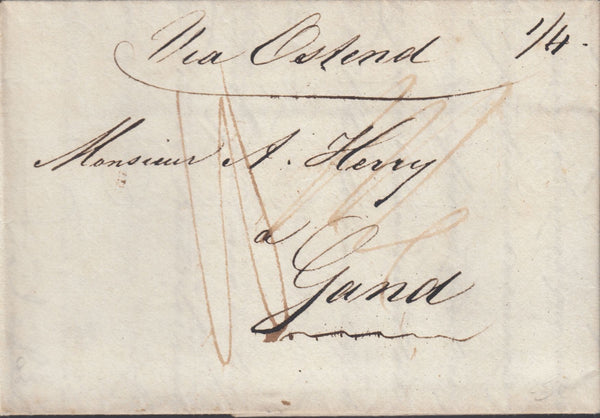 Via Ostend 1/4.
Monsieur A. Herry
a
Gand